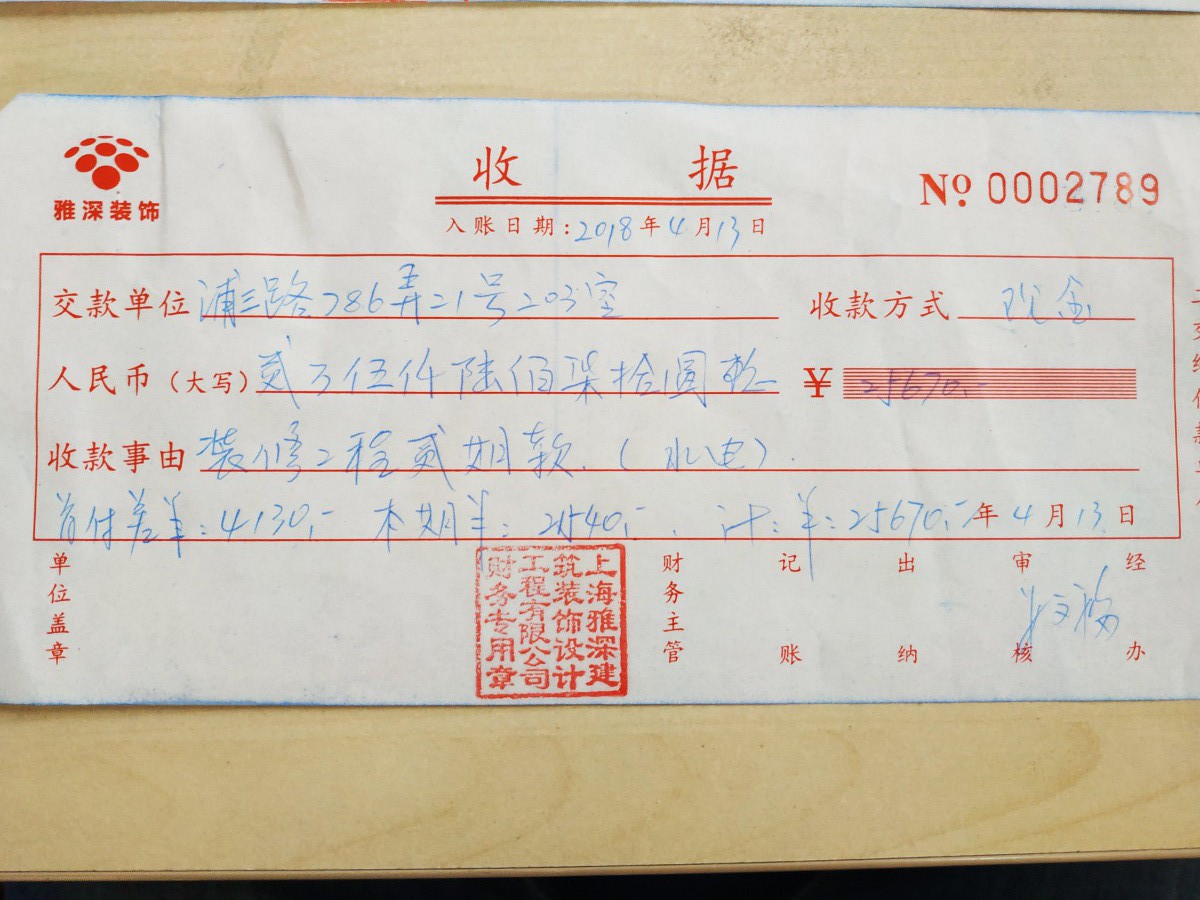 雅深装饰
收 据
No 0002789
入账日期：2018年4月13日
交款单位 浦三路786弄21号203室 收款方式 现金
人民币（大写）贰万伍仟陆佰柒拾圆整 ¥ 25670.-
收款事由 装修工程贰期款.（水电）.
首付差¥：4130.- 本期¥：21540.-. 计：¥：25670.- 年4月13日
单位盖章 财务主管 记账 出纳 审核 经办
上海雅深建筑装饰设计工程有限公司财务专用章